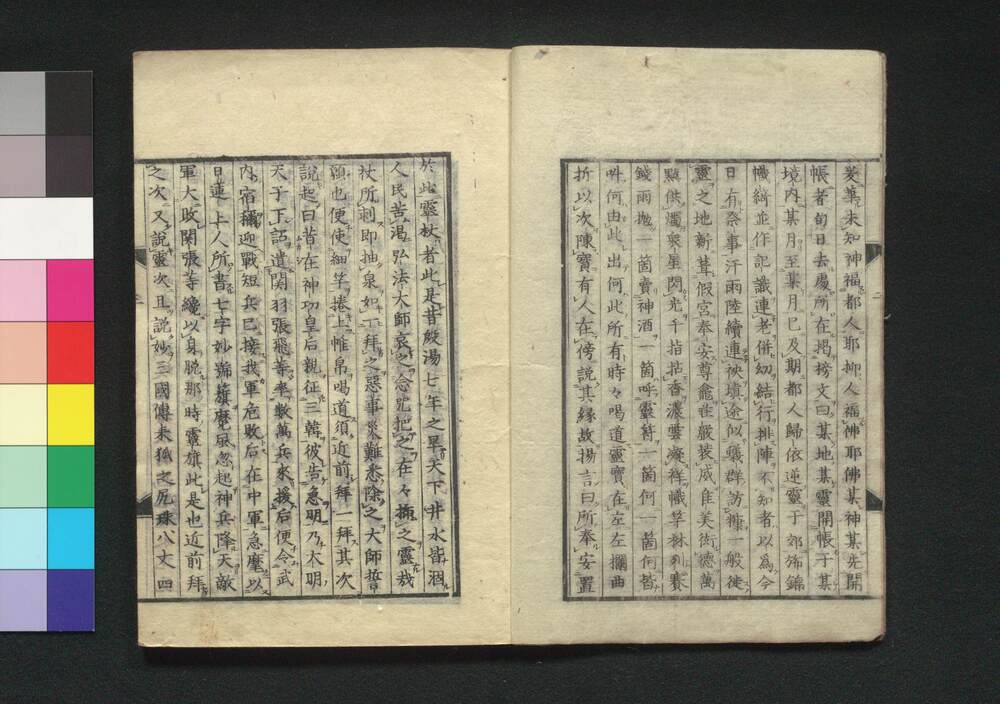 知神福都人耶抑人福佛耶佛某神某先開
帳者旬日去處所在掲榜文曰某地某靈開帳于某
境内某月至某月巳及期都人歸依逆靈于郊斾錦
幟綺並作記識連老併幼結行排陣不知者以爲今
日有祭事汗雨陸續連袂填途似驥群訪糠一般徙
靈之地新葺假宮奉安尊龕莊嚴裝威隹美術德萬
點供燭爽星閃光千指拈香濃雲凝祥幟竿林列賽
錢雨抛一箇賣神酒一箇呼靈符一箇何一箇何皆
吽何由此出何此所有時々喝道靈寶在左左擱曲
折以次陳寶有人在傍説其縁故揚言曰所奉安置
於此靈杖者此是昔殷湯七年之旱天下井水皆涸
人民苦渇弘法大師哀之念咒把之在々揷之靈哉
杖所刺即抽泉如一拜之惡事災難悉除之大師誓
願也便使細竿捲上帷帛喝道須近前拜一拜其次
説起曰昔在神功皇后親征三韓彼告急明乃大明
天子下詔遣関羽張飛等率數萬兵來援后便令武
内宿禰迎戰短兵已接我軍危敗后在中軍急麾以
日蓮上人所書七字妙號籏麾風忽起神兵降天敵
軍大敗関張等纔以身脱那時靈旗此是也近前拜
之次又説靈次且説妙三國傳来狐之尻珠八丈四